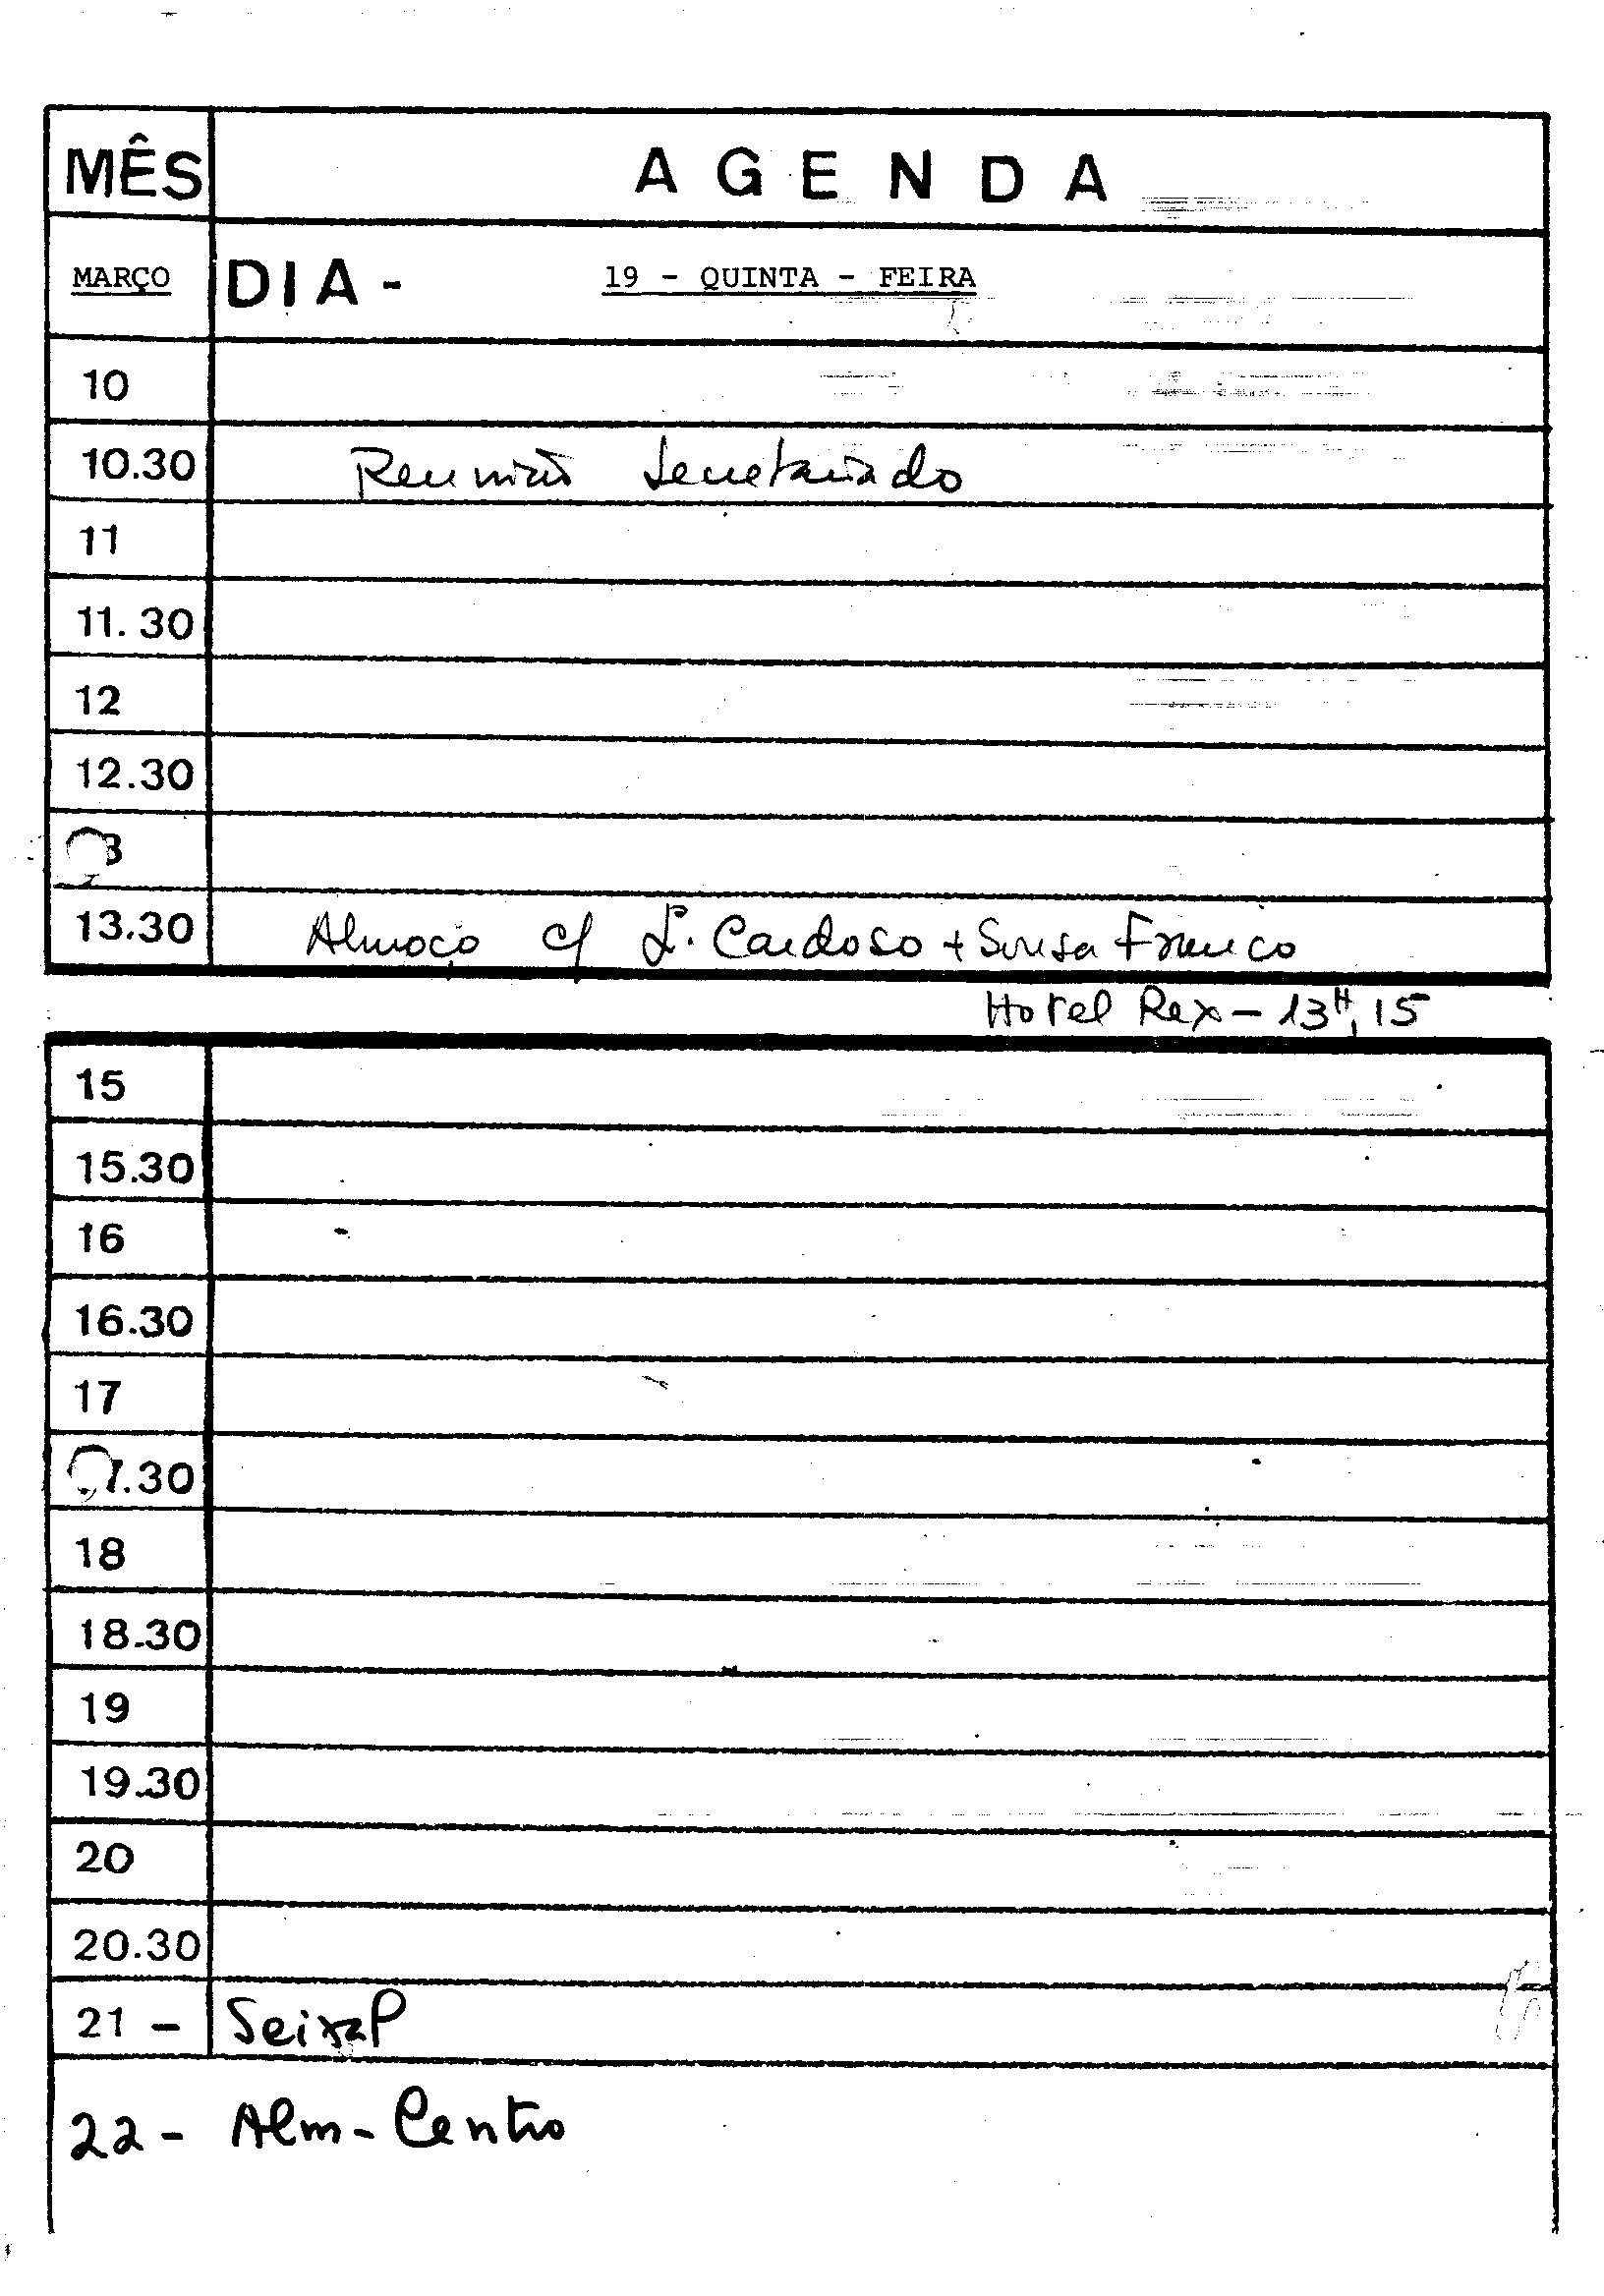 MÊS AGENDA
MARÇO DIA - 19 - QUINTA - FEIRA
10
10.30 Reunião Secretariado
11
11.30
12
12.30
3
13.30 Almoço c/ L. Cardoso + Sousa Franco
Hotel Rex - 13H,15
15
15.30
16
16.30
17
7.30
18
18.30
19
19.30
20
20.30
21 -
22 - Alm - Centro